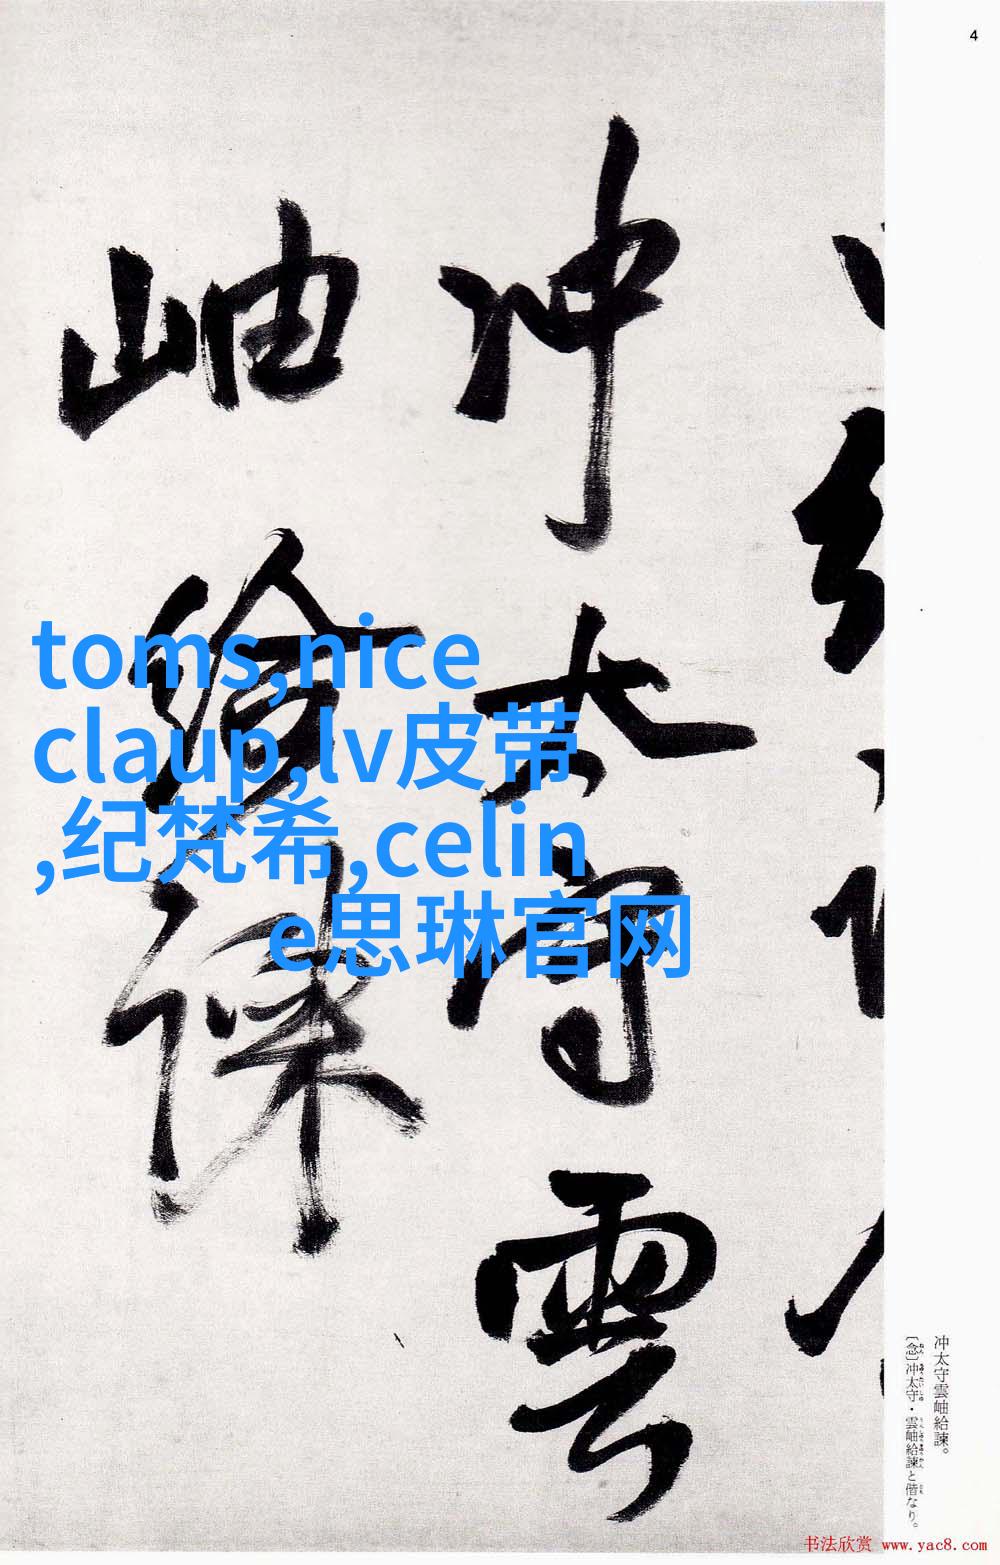 4
冲太守雲
岫給諫
toms,nice
claup,lv皮带
,纪梵希,celin
e思琳官网
冲太守雲岫給諫。
〔念〕冲太守・雲岫給諫と偕なり。
书法欣赏 www.yac8.com